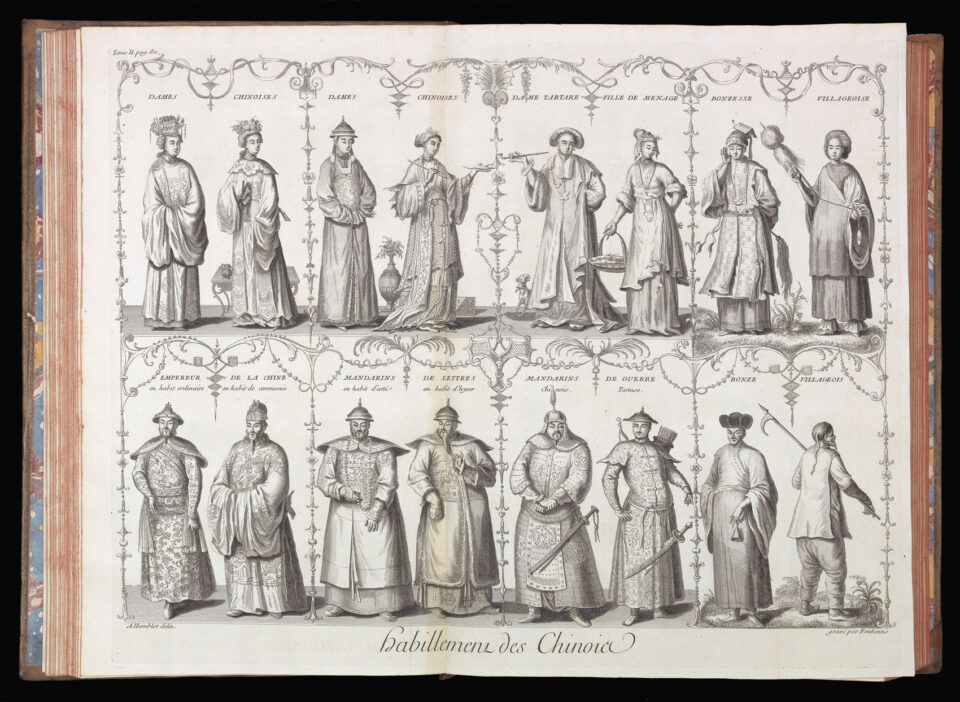 Tome II. pag. 80.
DAMES CHINOISES DAMES CHINOISES DAME TARTARE FILLE DE MENAGE BONZESSE VILLAGEOISE
EMPEREUR DE LA CHINE MANDARINS DE LETTRES MANDARINS DE GUERRE BONZE VILLAGEOIS
en habit ordinaire en habit de ceremonie en habit d'esté en habit d'hyver Chinois. Tartare.
A. Humblot delin. gravé par Fonbonne
habillement des Chinois